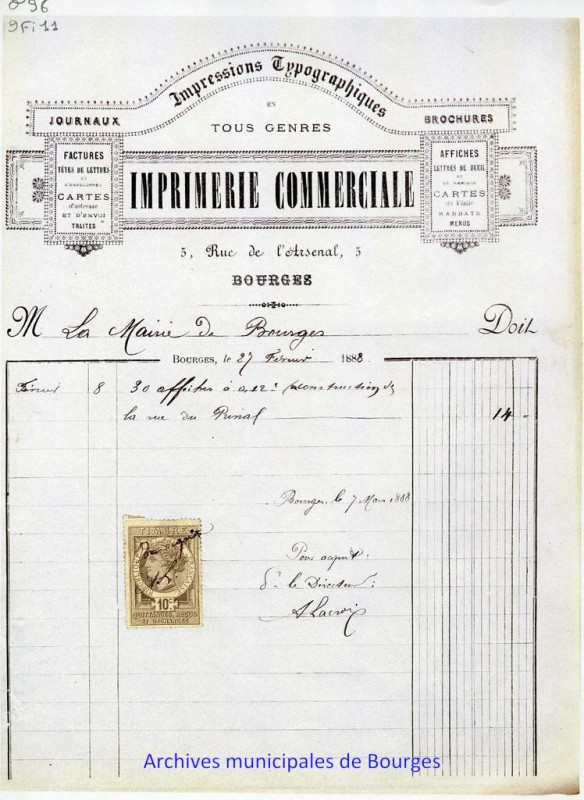 O 96
9Fi11
Impressions Typographiques
EN
TOUS GENRES
JOURNAUX
BROCHURES
FACTURES
TÊTES DE LETTRES
ET
CARTES
d'adresse
ET D'ENVOI
TRAITES
AFFICHES
LETTRES DE DEUIL
ET
DE MARIAGE
CARTES
de Visite
MANDATS
MENUS
IMPRIMERIE COMMERCIALE
5, Rue de l'Arsenal, 5
BOURGES
M La Mairie de Bourges Doit
BOURGES, le 27 Février 1888
Février 8 30 affiches à construction de
la rue du 14 "
Bourges le 7 Mars 1888
TIMBRE
10c
QUITTANCES, REÇUS
ET DÉCHARGES
Pour acquit :
Pr le Directeur :
A Lacroix
Archives municipales de Bourges